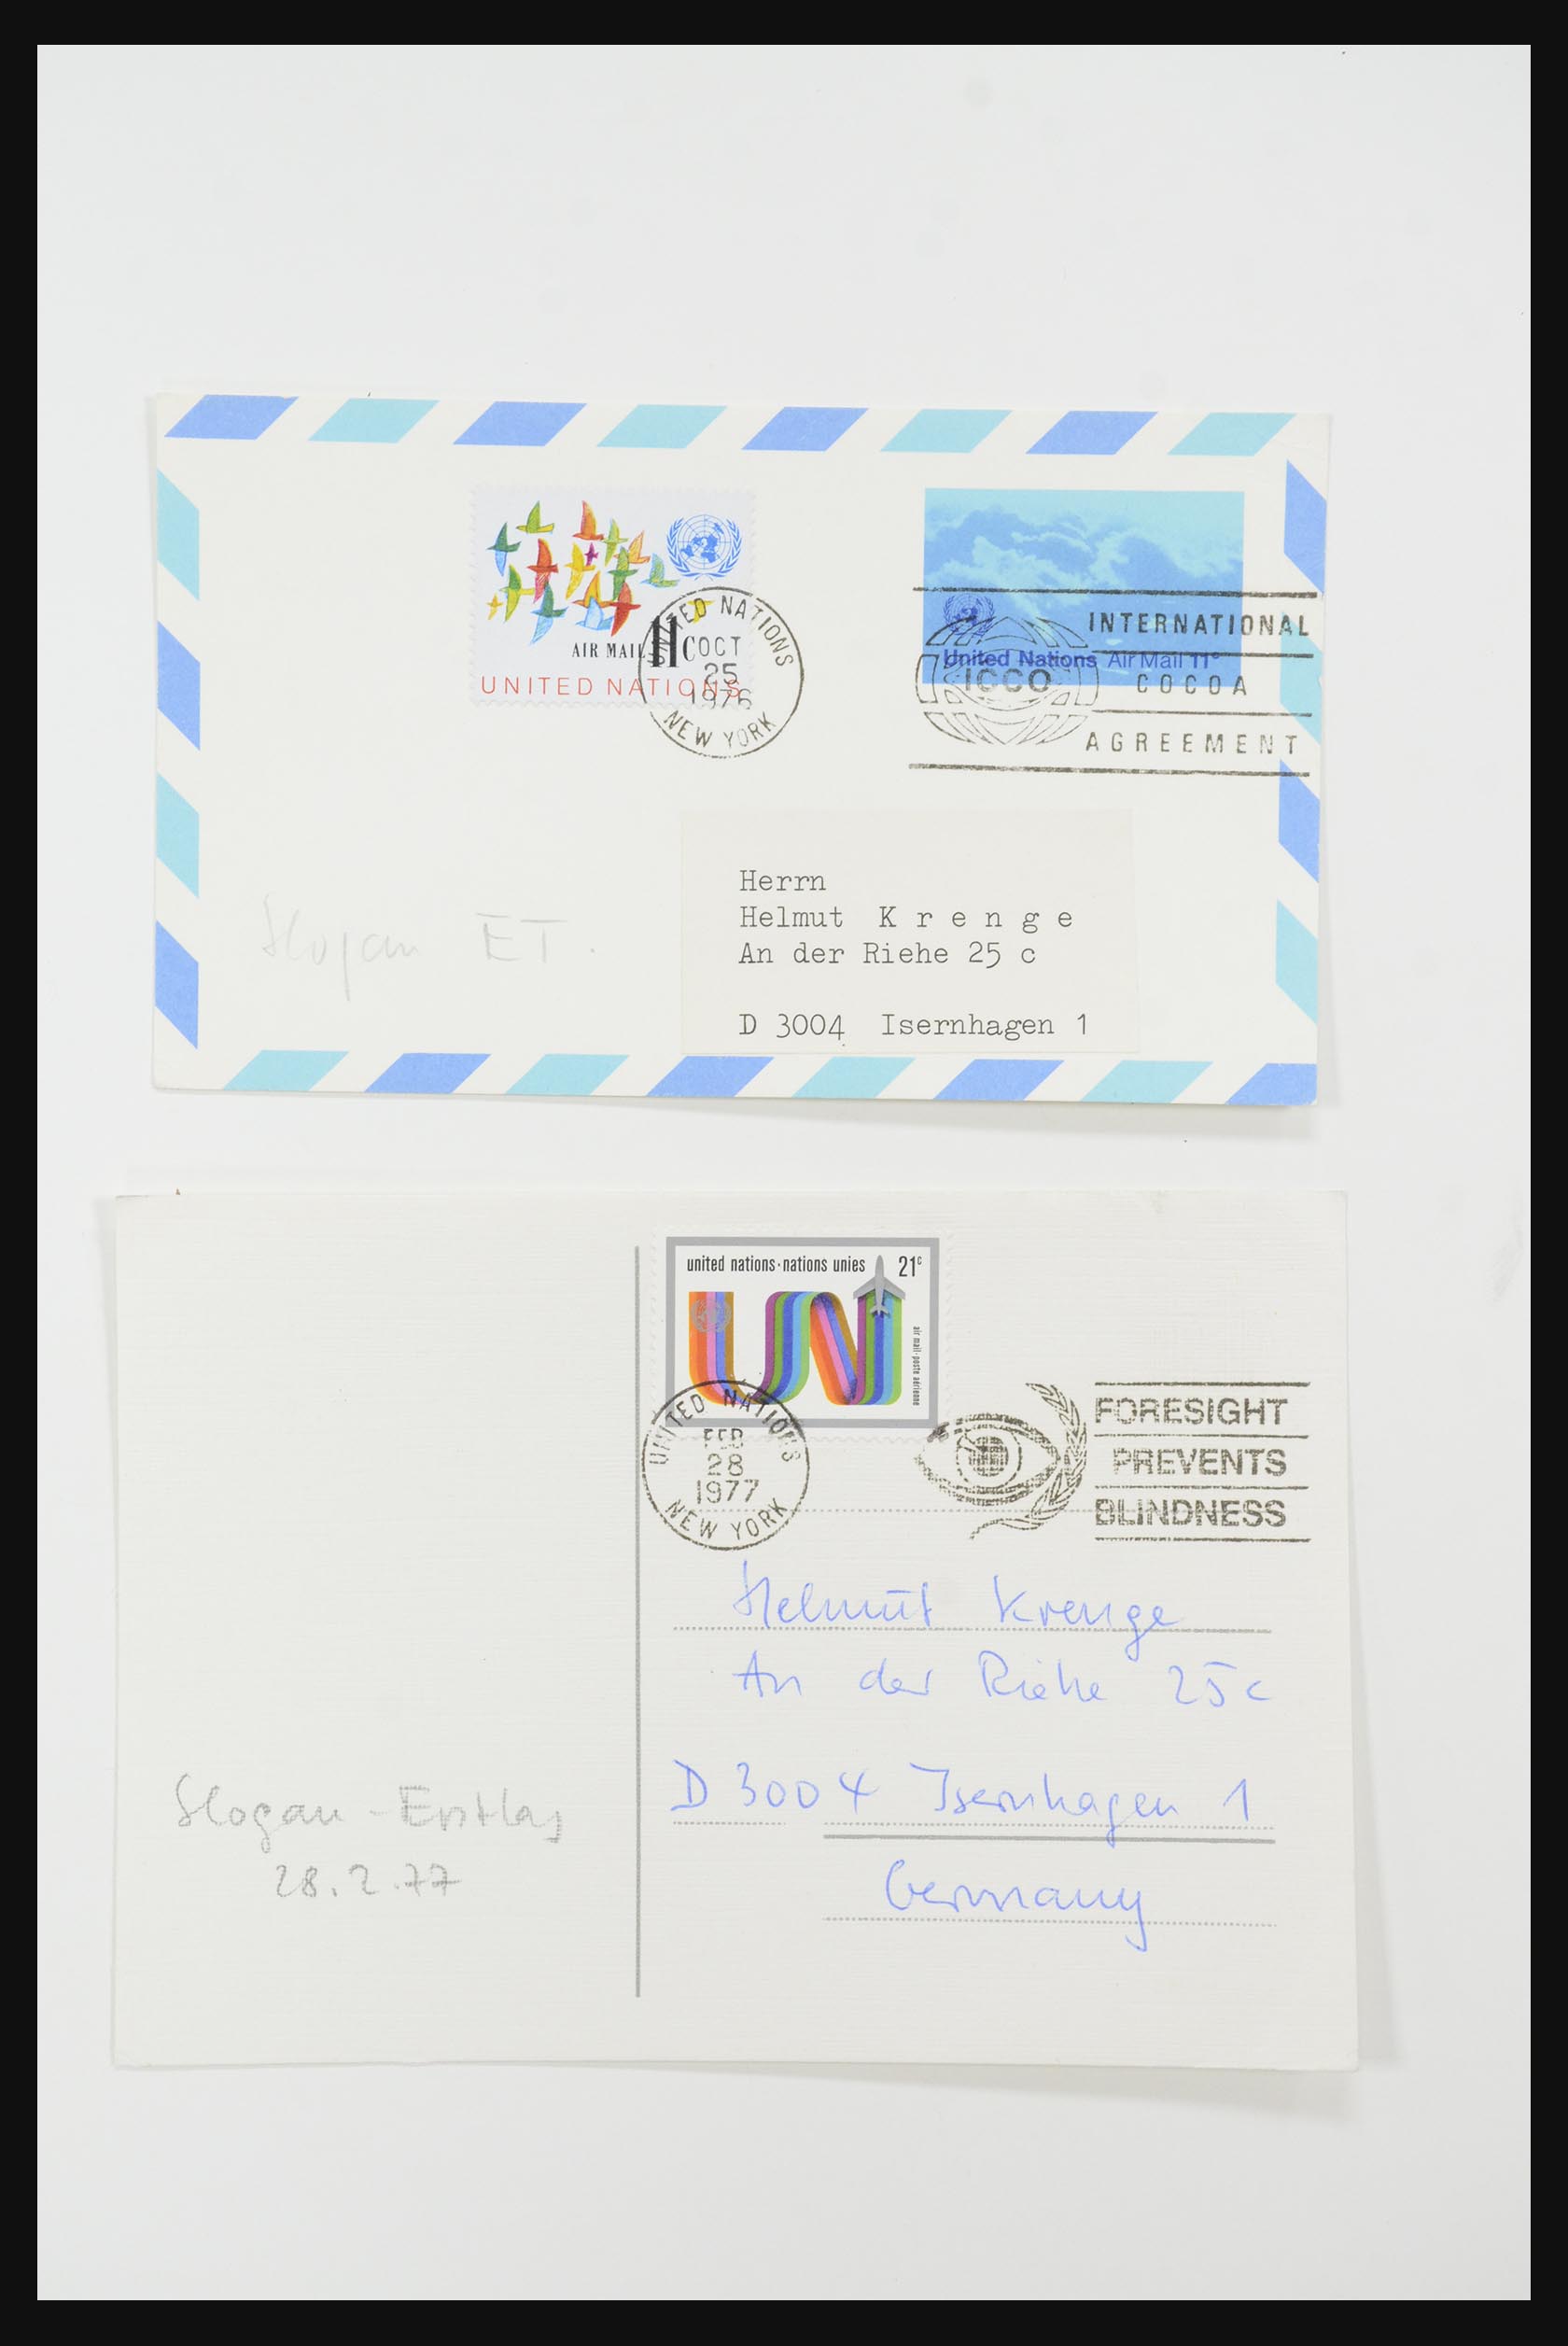 AIR MAIL 11c
UNITED NATIONS
UNITED NATIONS
OCT
25
1976
NEW YORK
United Nations Air Mail 11c
ICCO
INTERNATIONAL
COCOA
AGREEMENT
Herrn
Helmut K r e n g e
An der Riehe 25 c
D 3004 Isernhagen 1
Slogan ET.
united nations·nations unies 21c
UN
air mail·poste aérienne
UNITED NATIONS
FEB
28
1977
NEW YORK
FORESIGHT
PREVENTS
BLINDNESS
Helmut Krenge
An der Riehe 25c
D 3004 Isernhagen 1
Germany
Slogan - Erstlag
28.2.77